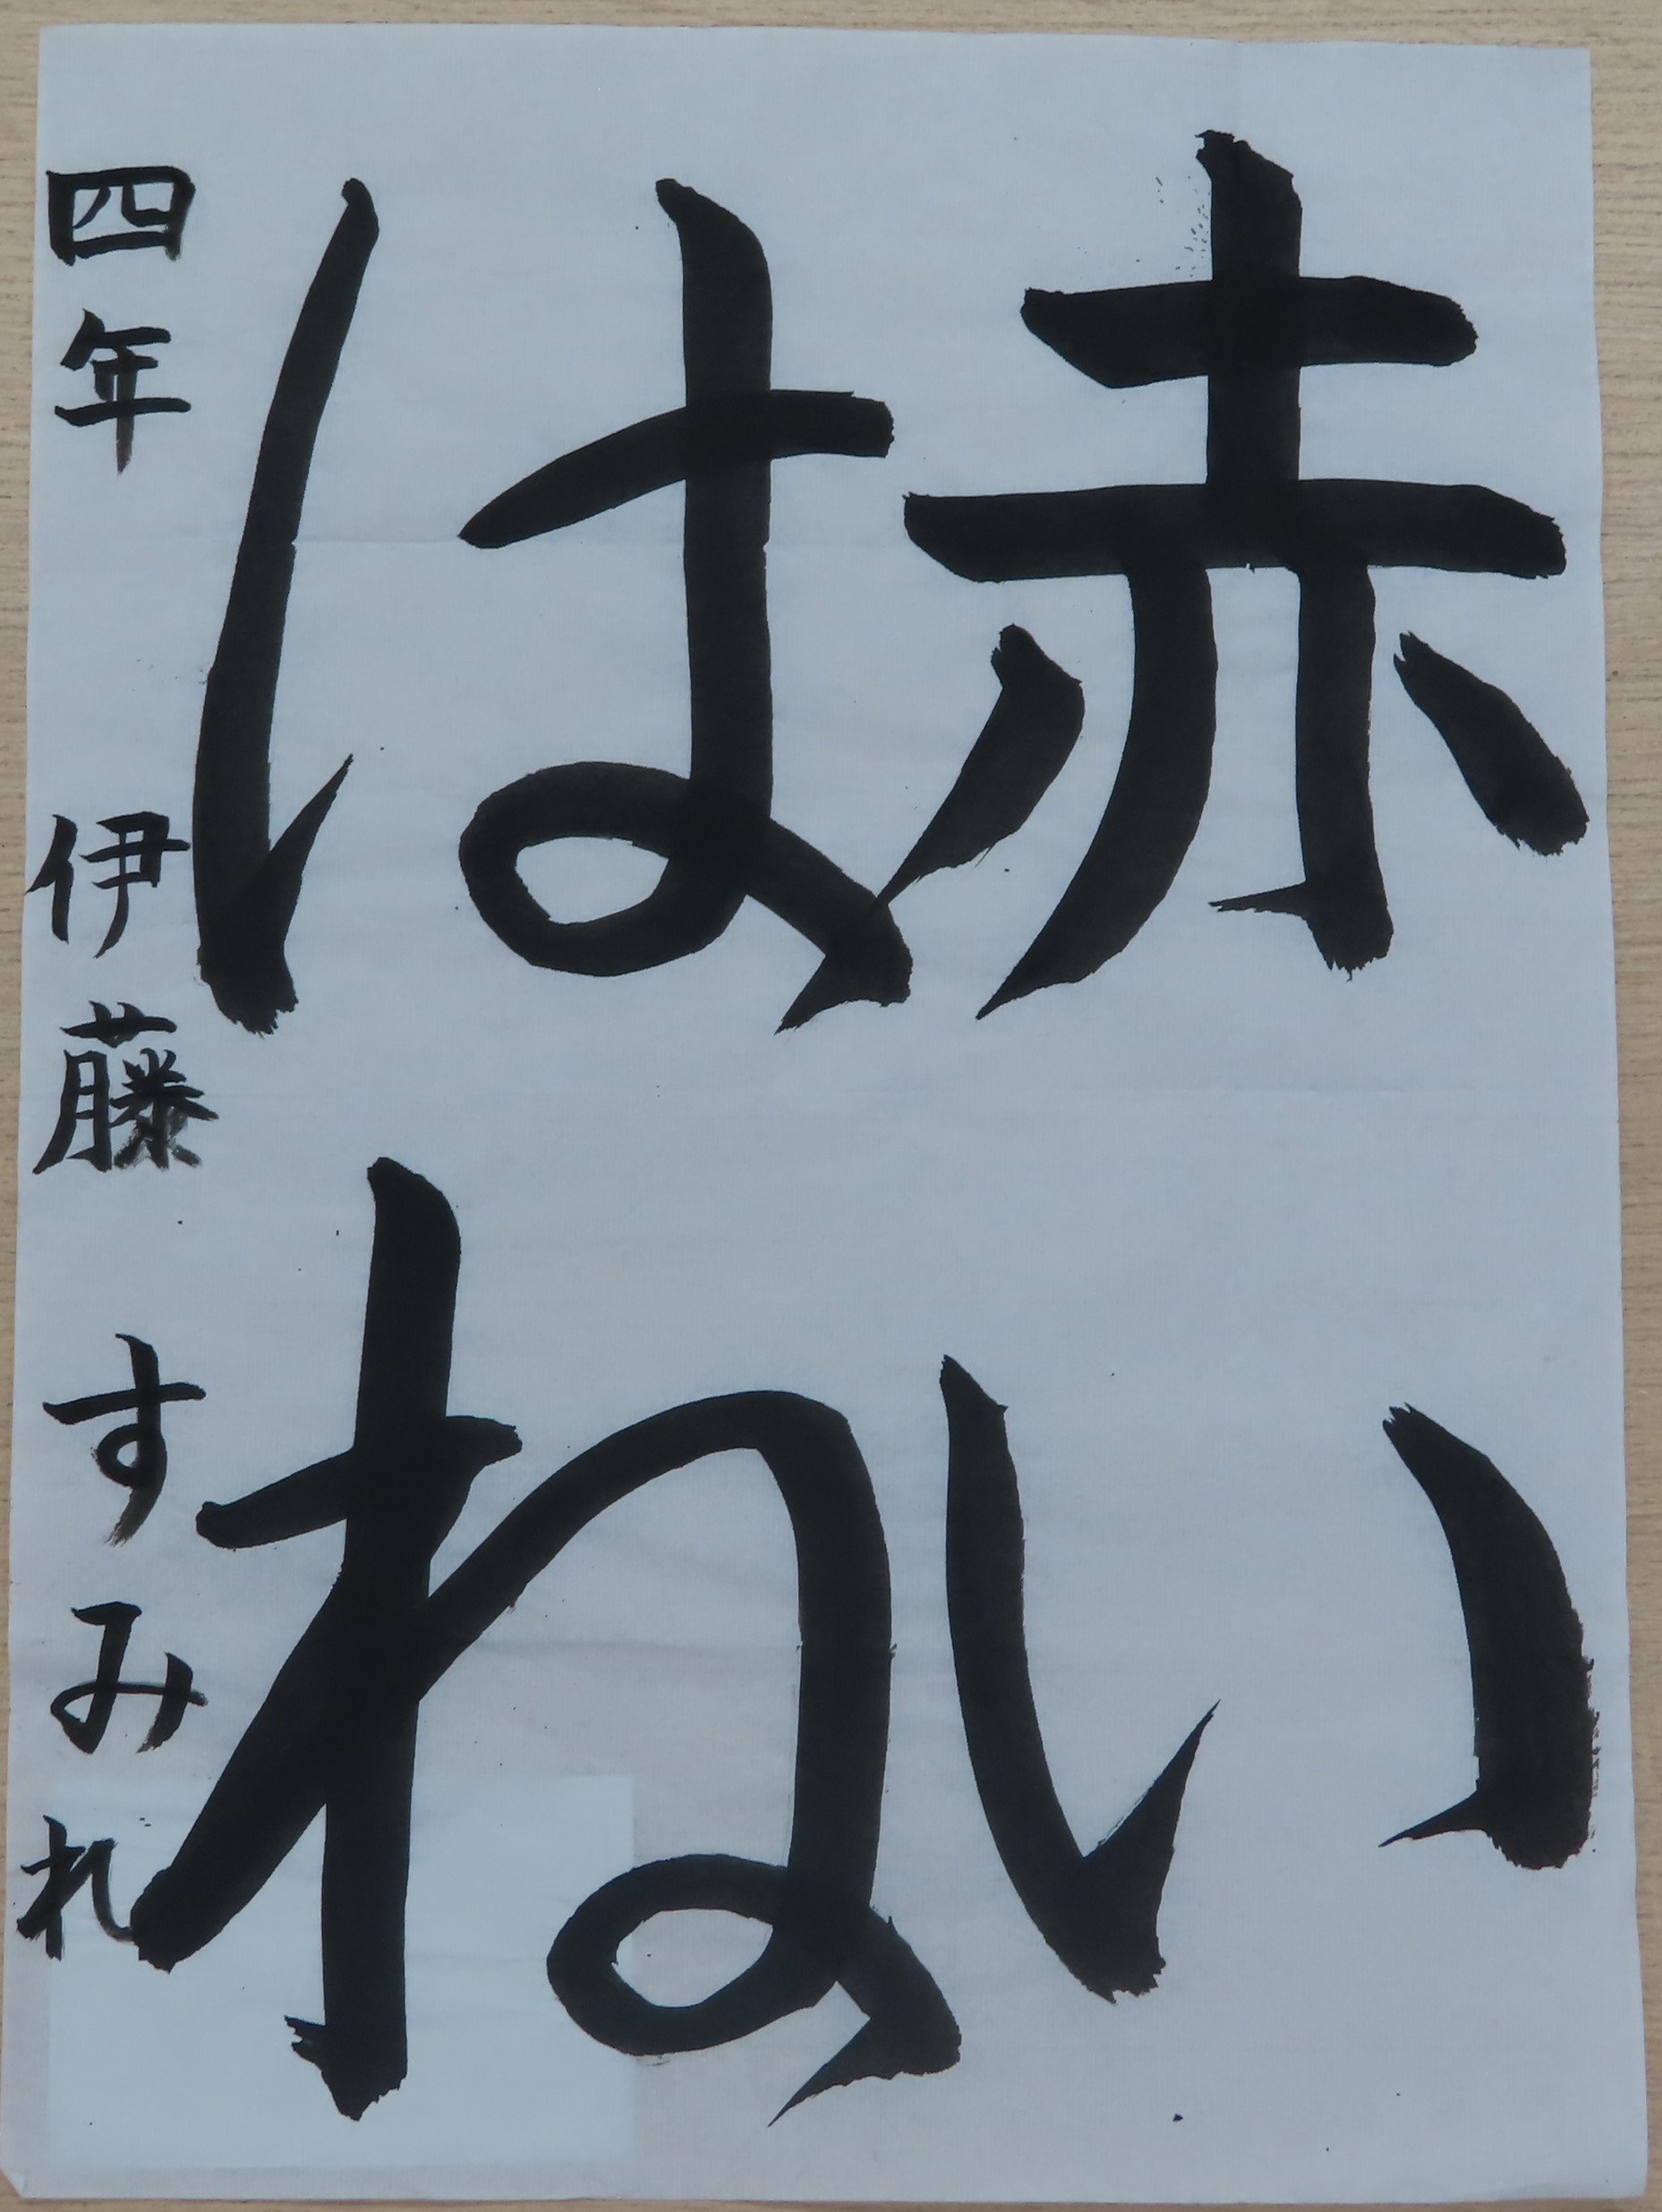 赤い
はね
四年 伊藤 すみれ